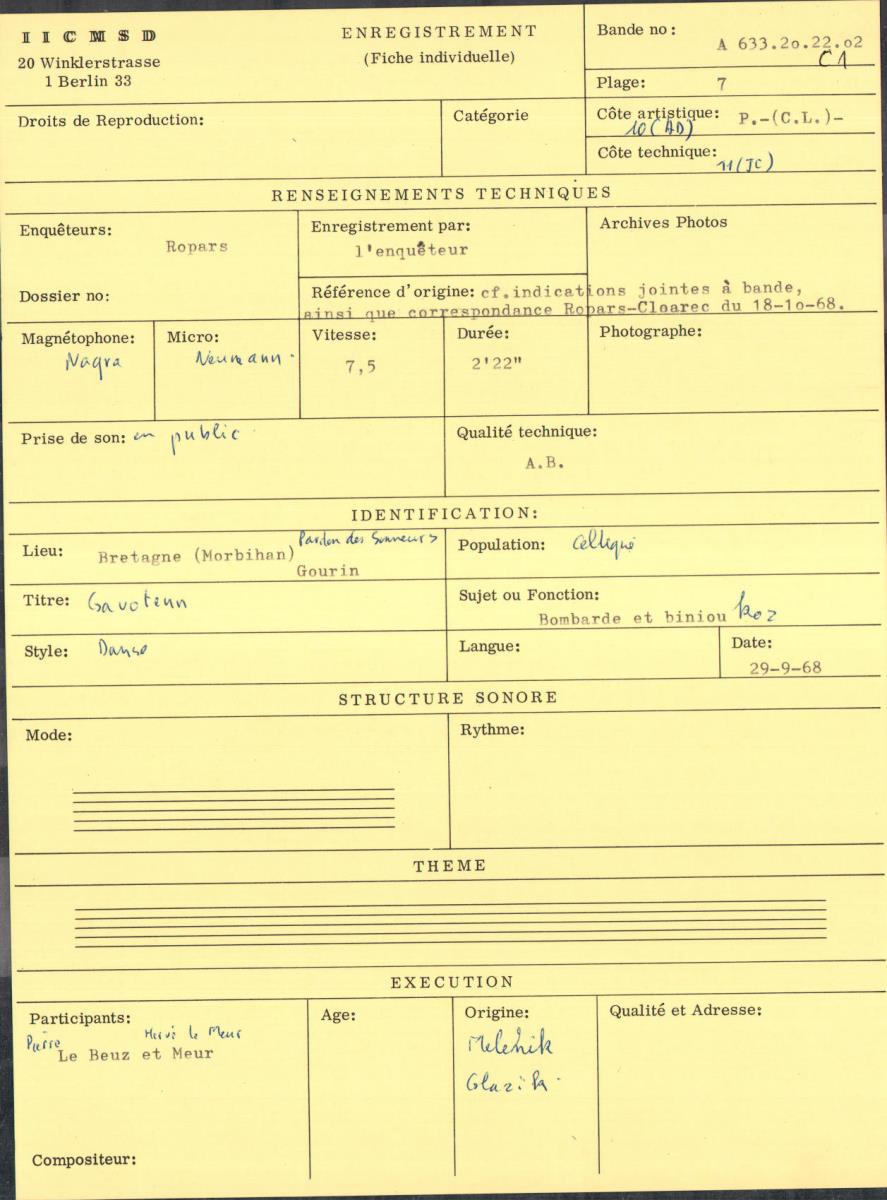 I I C M S D
20 Winklerstrasse
1 Berlin 33
ENREGISTREMENT
(Fiche individuelle)
Bande no: A 633.2o.22.o2
C1
Plage: 7
Droits de Reproduction:
Catégorie
Côte artistique: P.-(C.L.)-
10(AD)
Côte technique:
11(JC)
RENSEIGNEMENTS TECHNIQUES
Enquêteurs:
Ropars
Enregistrement par:
l'enquêteur
Archives Photos
Dossier no:
Référence d'origine: cf.indications jointes à bande,
ainsi que correspondance Ropars-Cloarec du 18-1o-68.
Magnétophone:
Nagra
Micro:
Neumann.
Vitesse:
7,5
Durée:
2'22"
Photographe:
Prise de son: en public
Qualité technique:
A.B.
IDENTIFICATION:
Lieu: Bretagne (Morbihan) Pardon des Sonneurs
Gourin
Population: Celtique
Titre: Gavotenn
Sujet ou Fonction:
Bombarde et biniou koz
Style: Danse
Langue:
Date:
29-9-68
STRUCTURE SONORE
Mode:
Rythme:
THEME
EXECUTION
Participants:
Pierre Hervé le Meur
Le Beuz et Meur
Age:
Origine:
Melenik
Glazik.
Qualité et Adresse:
Compositeur: